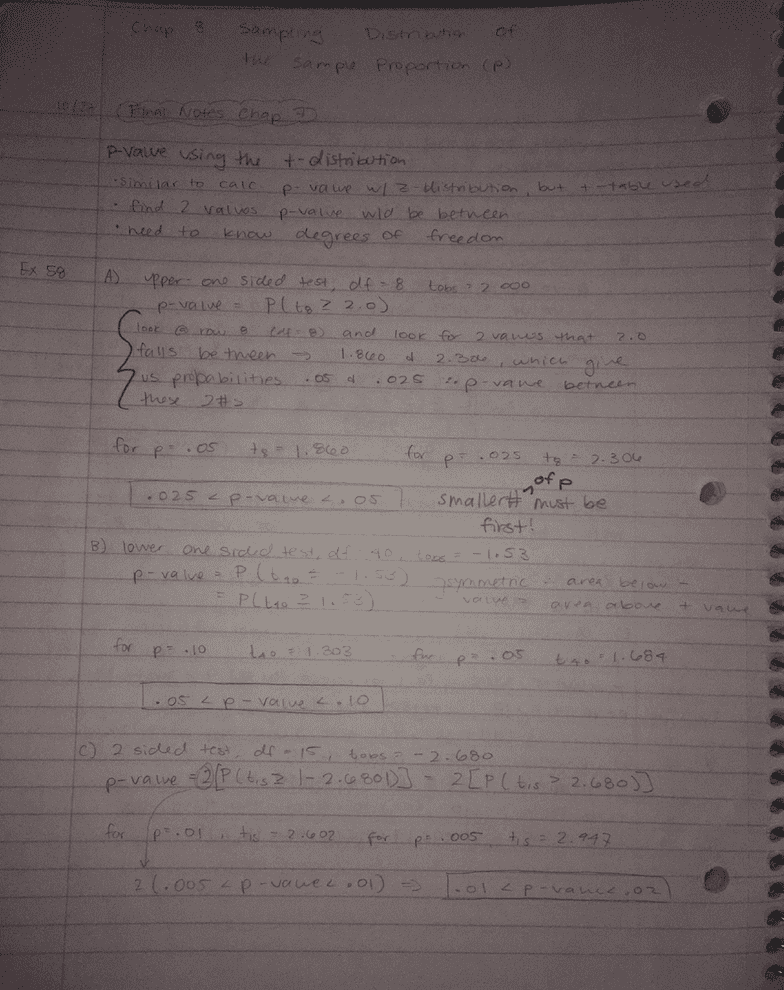 Chap 8 Sampling Distribution of
the Sample Proportion (p)
10/27 (Final Notes Chap 7)
p-value using the t-distribution
• similar to calc p-value w/ z-distribution, but t-table used
• find 2 values p-value wld be between
• need to know degrees of freedom
Ex 58 A) upper-one sided test, df = 8 tobs = 2.000
p-value = P(t8 ≥ 2.0)
look @ row 8 (df=8) and look for 2 values that 2.0
falls between → 1.860 & 2.306, which give
us probabilities .05 & .025 ∴ p-value between
these 2 #s
for p = .05 t8 = 1.860 for p = .025 t8 = 2.306
.025 < p-value < .05 smaller # of p must be
first!
B) lower one sided test, df 40, tobs = -1.53
p-value = P(t40 ≤ -1.53) symmetric area below -
= P(t40 ≥ 1.53) value = area above + value
for p = .10 t40 = 1.303 for p = .05 t40 = 1.684
.05 < p-value < .10
C) 2 sided test, df = 15, tobs = -2.680
p-value = 2[P(t15 ≥ |-2.680|)] = 2[P(t15 > 2.680)]
for p = .01, t15 = 2.602 for p = .005 t15 = 2.947
2(.005 < p-value < .01) ⇒ .01 < p-value < .02